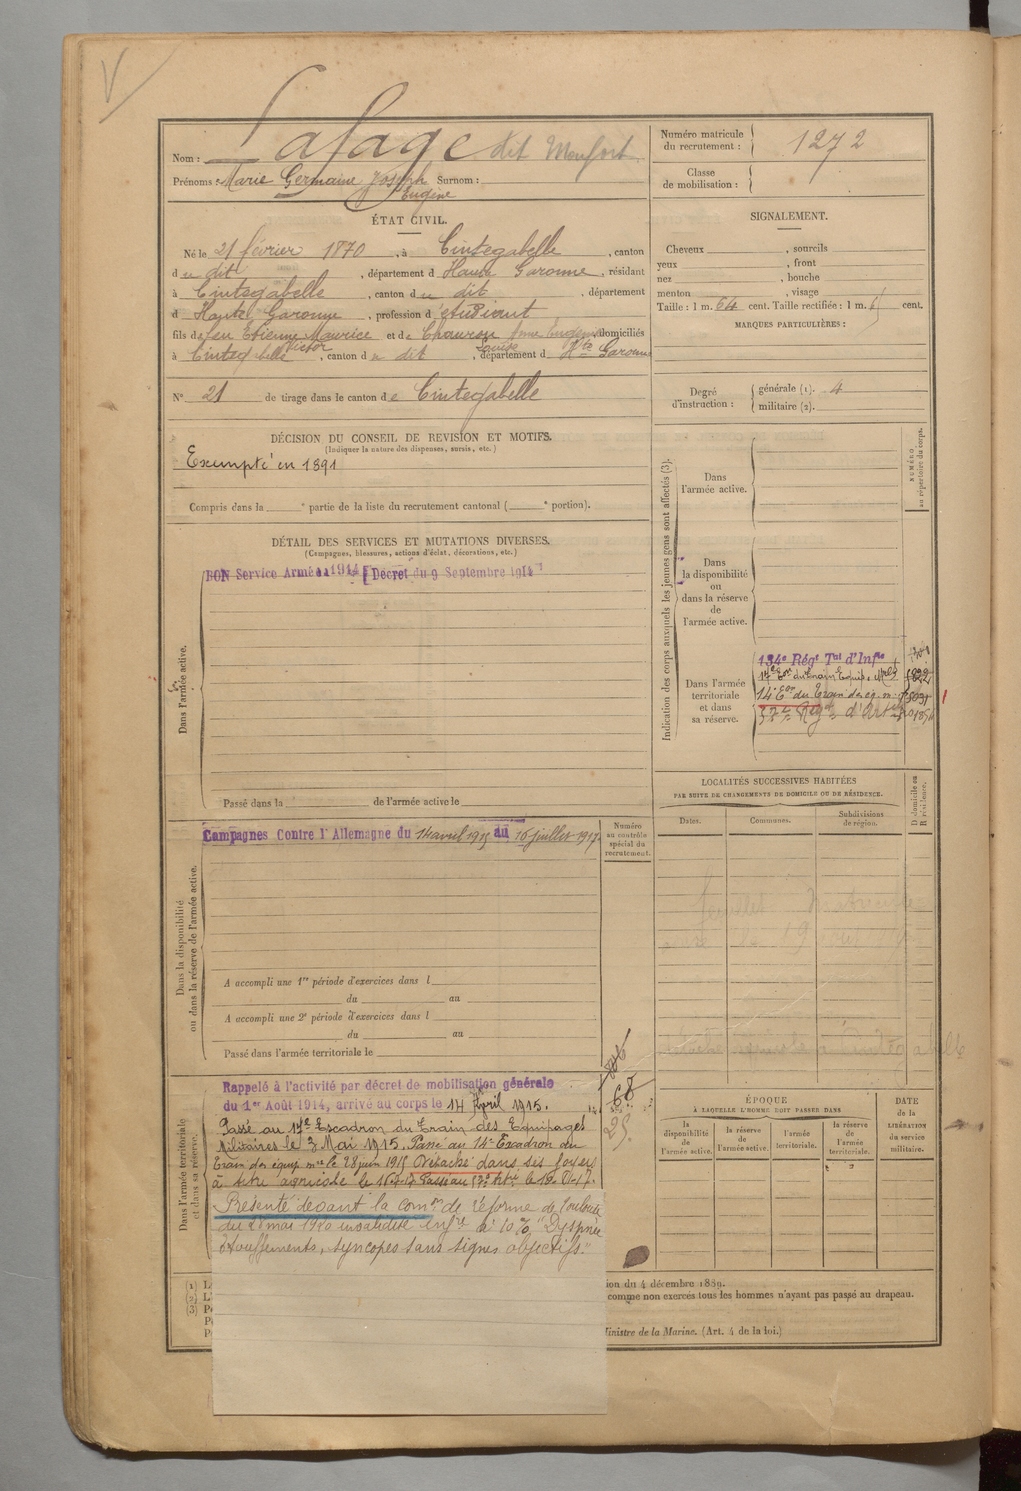 Nom : Lafage dit Monfort
Prénoms : Marie Germaine Joseph Eugène Surnom :
Numéro matricule du recrutement : 1272
Classe de mobilisation :
ÉTAT CIVIL.
Né le 21 février 1870, à Cintegabelle, canton
du dit, département d Haute Garonne, résidant
à Cintegabelle, canton du dit, département
d Haute Garonne, profession d'étudiant
fils de feu Etienne Maurice Victor et de Louise domiciliés
à Cintegabelle, canton du dit, département d Hte Garonne
N° 21 de tirage dans le canton de Cintegabelle
SIGNALEMENT.
Cheveux , sourcils
yeux , front
nez , bouche
menton , visage
Taille : 1 m. 64 cent. Taille rectifiée : 1 m. cent.
MARQUES PARTICULIÈRES :
Degré d'instruction : générale (1). 4
militaire (2).
DÉCISION DU CONSEIL DE REVISION ET MOTIFS.
(Indiquer la nature des dispenses, sursis, etc.)
Exempté en 1891
Compris dans la e partie de la liste du recrutement cantonal ( e portion).
DÉTAIL DES SERVICES ET MUTATIONS DIVERSES.
(Campagnes, blessures, actions d'éclat, décorations, etc.)
BON Service Armé 1914 [Décret du 9 Septembre 1914
Dans l'armée active.
Passé dans la de l'armée active le
Indication des corps auxquels les jeunes gens sont affectés (3).
NUMÉRO au répertoire du corps.
Dans l'armée active.
Dans la disponibilité ou dans la réserve de l'armée active.
Dans l'armée territoriale et dans sa réserve.
134e Régt Tal d'Infie
17e Eon du Train Equip. Mres
14e Eon du Train des éq. m.
57e Régt d'Art
LOCALITÉS SUCCESSIVES HABITÉES
PAR SUITE DE CHANGEMENTS DE DOMICILE OU DE RÉSIDENCE.
D domicile ou R résidence.
Dates. Communes. Subdivisions de région.
Campagnes Contre l'Allemagne du 14 avril 1915 au 16 juillet 1917.
Numéro au contrôle spécial du recrutement.
Dans la disponibilité ou dans la réserve de l'armée active.
A accompli une 1re période d'exercices dans l
du au
A accompli une 2e période d'exercices dans l
du au
Passé dans l'armée territoriale le
Dans l'armée territoriale et dans sa réserve.
Rappelé à l'activité par décret de mobilisation générale
du 1er Août 1914, arrivé au corps le 14 April 1915.
Passé au 17e Escadron du Train des Equipages
Militaires le 7 Mai 1915. Passé au 14e Escadron du
Train des équip. mres le 28 juin 1915 Détaché dans ses foyers
à titre agricole le
Présenté devant la comon de réforme de Toulouse
du mai 1920 invalidité infre à 10% "Dyspnée
étouffements, syncopes sans signes objectifs."
ÉPOQUE
À LAQUELLE L'HOMME DOIT PASSER DANS
la disponibilité de l'armée active. la réserve de l'armée active. l'armée territoriale. la réserve de l'armée territoriale.
DATE de la LIBÉRATION du service militaire.
(1)
(2)
(3)
ion du 4 décembre 1889.
comme non exercés tous les hommes n'ayant pas passé au drapeau.
Ministre de la Marine. (Art. 4 de la loi.)